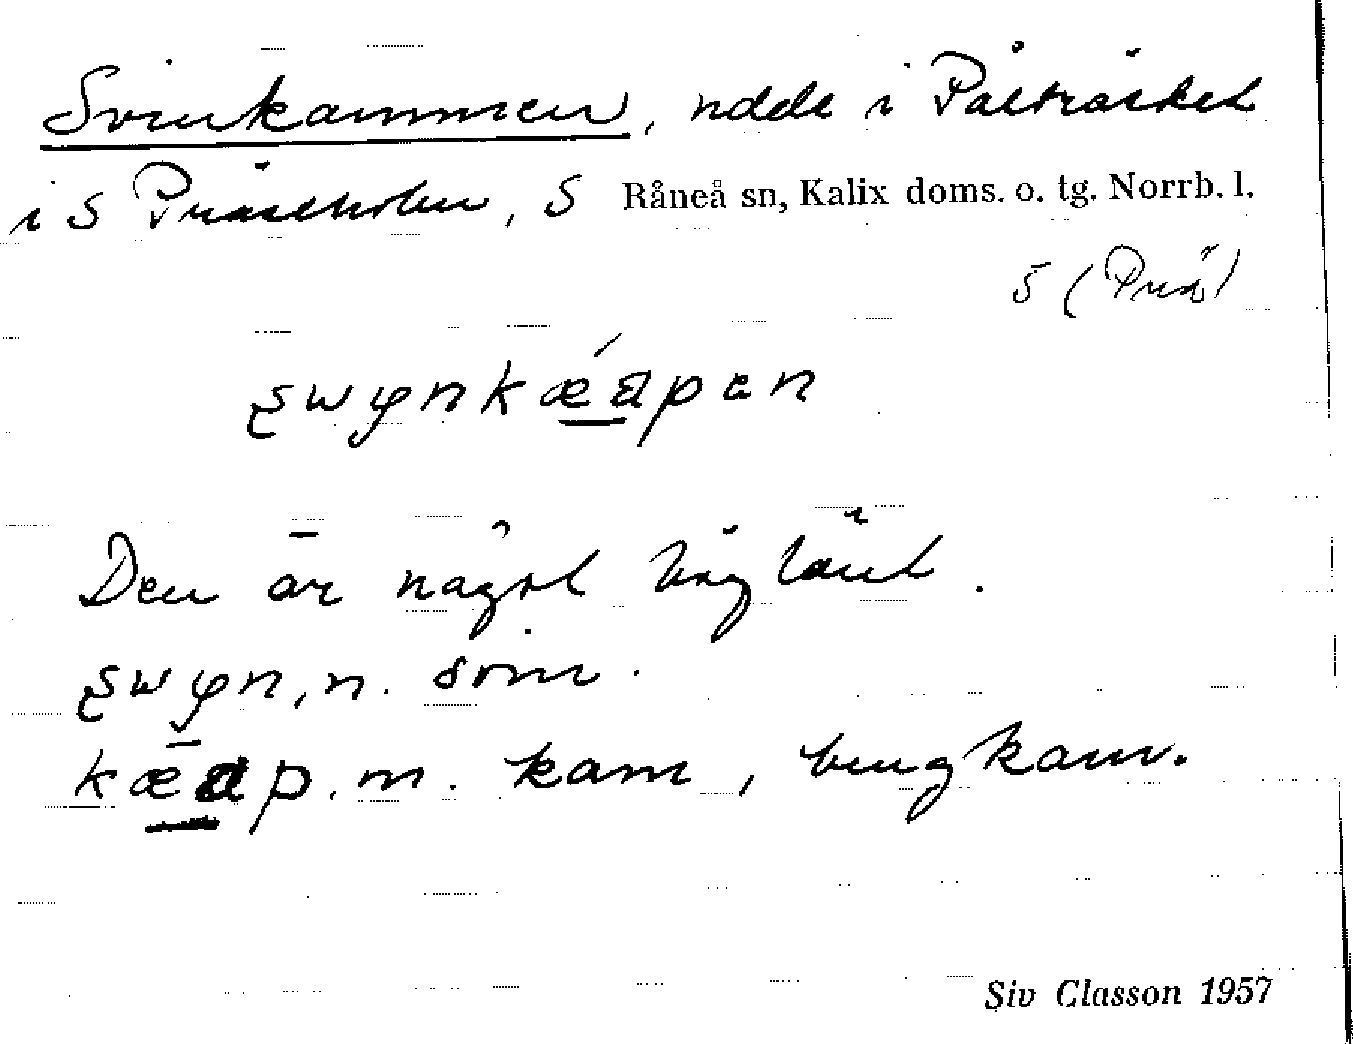 Svinkammen, udde i Pålträsket
i S Prästholm, S Råneå sn, Kalix doms. o. tg. Norrb. l.
S (Prä)
swynkǽapen
Den är något höglänt.
swyn, n. svin.
kæap. m. kam, kam.
Siv Classon 1957